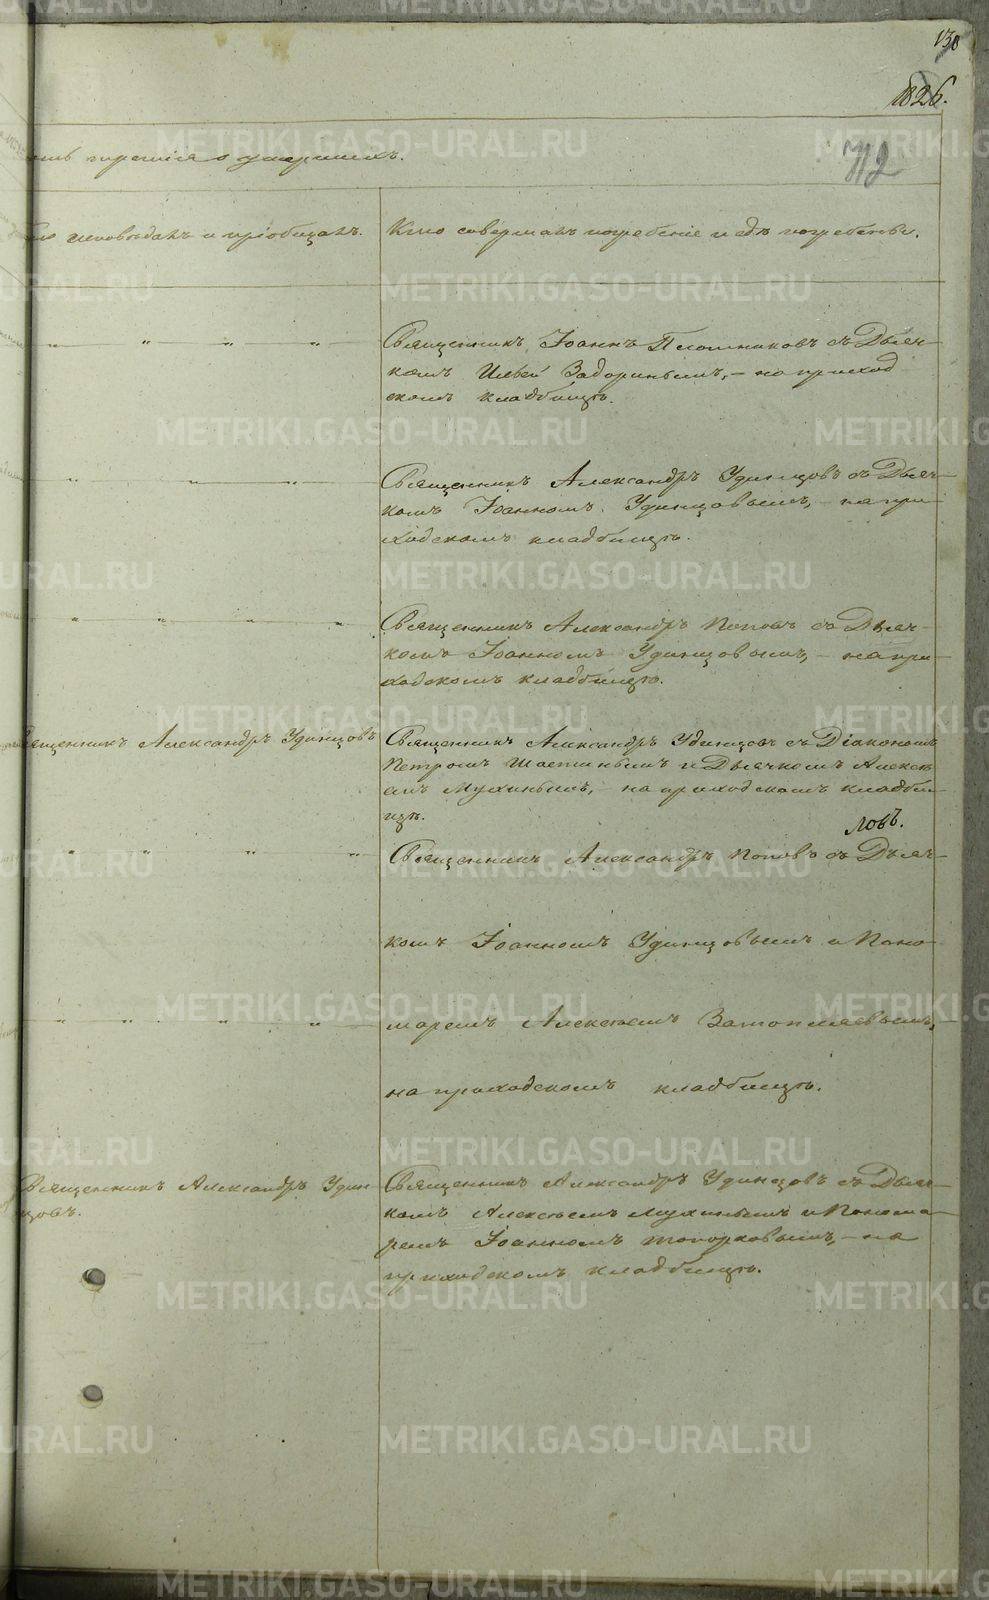 138
1826.
METRIKI.GASO-URAL.RU
третія о умершихъ.
712
исповѣдалъ и пріобщалъ.
Кто совершалъ погребеніе и гдѣ погребены.
Священникъ Іоаннъ Плотниковъ съ Дьяч-
комъ Ильей Задоринымъ, – на приход
скомъ кладбищѣ.
Священникъ Александръ Удинцовъ съ Дьяч-
комъ Іоанномъ Удинцовымъ, – на при-
ходскомъ кладбищѣ.
Священникъ Александръ Поповъ съ Дьяч-
комъ Іоанномъ Удинцовымъ, – на при-
ходскомъ кладбищѣ.
Священникъ Александръ Удинцовъ
Священникъ Александръ Удинцовъ съ Діакономъ
Петромъ и Дьячкомъ Алексѣ
емъ Мухинымъ, – на приходскомъ кладби-
щѣ.
ловъ.
Священникъ Александръ Поповъ съ Дьяч-
комъ Іоанномъ Удинцовымъ и Поно-
маремъ Алексѣемъ Затопляевымъ,
на приходскомъ кладбищѣ.
Священникъ Александръ Удин-
цовъ.
Священникъ Александръ Удинцовъ съ Дьяч-
комъ Алексѣемъ Мухинымъ и Понома-
ремъ Іоанномъ Топорковымъ, – на
приходскомъ кладбищѣ.